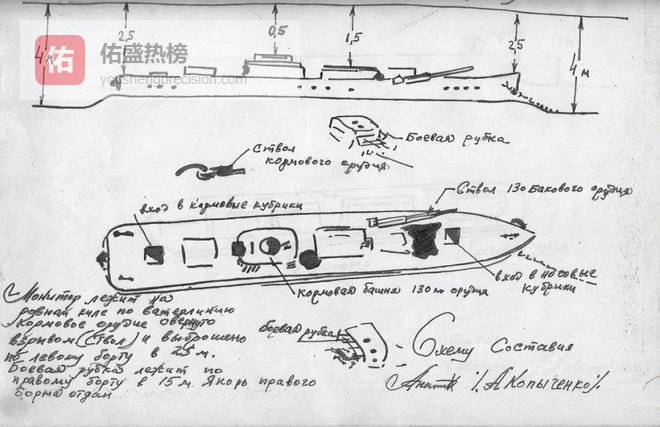 2,5
0,5
1,5
2,5
4 м
4 м
佑
佑盛热榜
youshengprecision.com
Боевая рубка
Ствол
кормового орудия
Ствол 130 Бакового орудия
вход в кормовые кубрики
вход в носовые
кубрики
кормовая башня 130 м орудия
Монитор лежит на
ровнам киле по ватерлинию
кормовое орудие свернуто
взрывом (Ствол) и выброшено
по левому борту в 25 м.
Боевая рубка лежит по
правому борту в 15 м. Якорь правого
борта отдан
боевая рубка
Схему Составил
/А Копыченко/